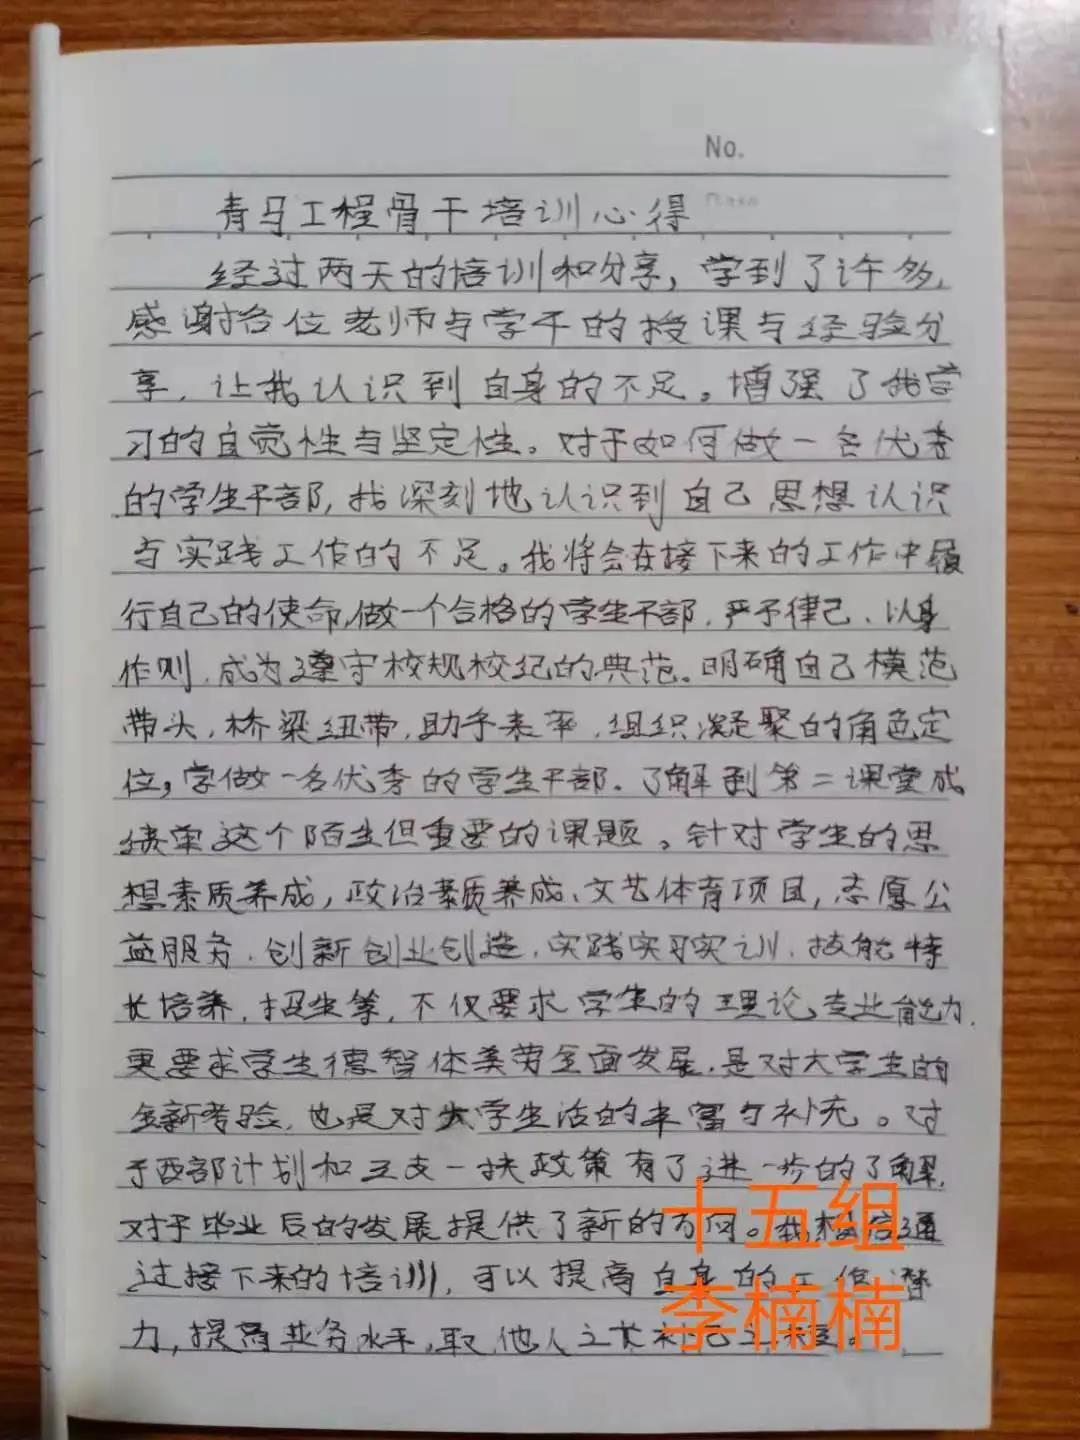 No.
青马工程骨干培训心得
经过两天的培训和分享，学到了许多，
感谢各位老师与学干的授课与经验分
享，让我认识到自身的不足。增强了我学
习的自觉性与坚定性。对于如何做一名优秀
的学生干部，我深刻地认识到自己思想认识
与实践工作的不足。我将会在接下来的工作中履
行自己的使命，做一个合格的学生干部，严予律己、以身
作则，成为遵守校规校纪的典范。明确自己模范
带头，桥梁纽带，助手表率，组织凝聚的角色定
位，学做一名优秀的学生干部。了解到第二课堂成
绩单这个陌生但重要的课题。针对学生的思
想素质养成，政治素质养成、文艺体育项目，志愿公
益服务，创新创业创造，实践实习实训，技能特
长培养，招生等，不仅要求学生的理论专业能力，
更要求学生德智体美劳全面发展，是对大学生的
全新考验，也是对大学生活的丰富与补充。对
于西部计划和三支一扶政策有了进一步的了解，
对于毕业后的发展提供了新的方向。我相信通
过接下来的培训，可以提高自身的工作潜
力，提高业务水平，取他人之长补己之短。
十五组
李楠楠